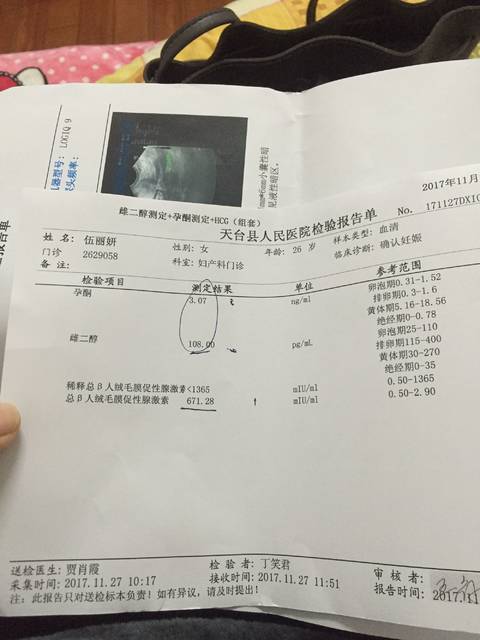 器型号: LOGIQ 9
头频率:
mm*6mm小囊性暗
见液性暗区。
报告单
2017年11月
雌二醇测定+孕酮测定+HCG（组套）
天台县人民医院检验报告单
No. 171127DXI0
姓名: 伍丽妍 性别: 女 年龄: 26 岁 样本类型: 血清
门诊 2629058 科室: 妇产科门诊 临床诊断: 确认妊娠
备注:
检验项目 测定结果 单位 参考范围
孕酮 3.07 ng/ml 卵泡期0.31-1.52
排卵期0.3-1.6
黄体期5.16-18.56
绝经期0-0.78
雌二醇 108.00 pg/mL 卵泡期25-110
排卵期115-400
黄体期30-270
绝经期0-35
稀释总β人绒毛膜促性腺激素<1365 mIU/ml 0.50-1365
总β人绒毛膜促性腺激素 671.28 ↑ mIU/ml 0.50-2.90
送检医生: 贾肖霞 检验者: 丁笑君 审核者:
采集时间: 2017.11.27 10:17 接收时间: 2017.11.27 11:51 报告时间: 2017.11
注: 此报告只对送检标本负责! 如有异议, 请及时提出!